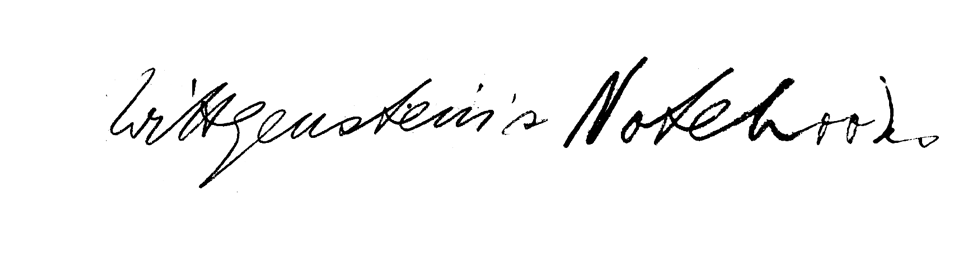 Wittgenstein's Notebooks